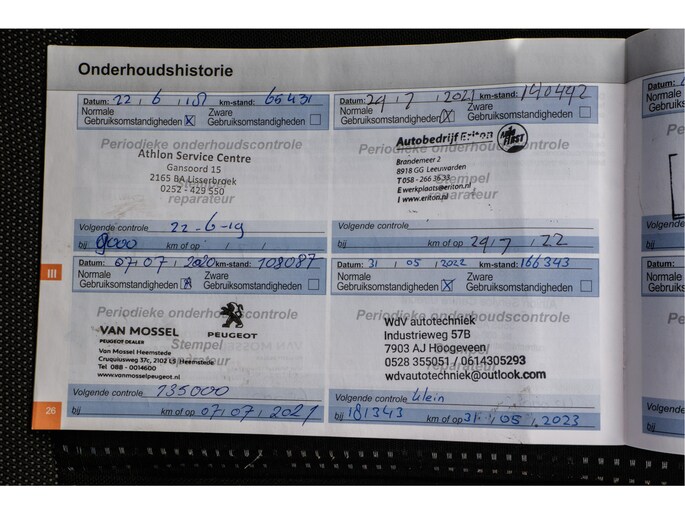 Onderhoudshistorie
Datum: 22 / 6 / 18 km-stand: 65431
Normale Zware
Gebruiksomstandigheden X Gebruiksomstandigheden
Periodieke onderhoudscontrole
Athlon Service Centre
Gansoord 15
2165 BA Lisserbroek
0252 - 429 550
Stempel
reparateur
Volgende controle 22-6-19
bij km of op / /
Datum: 29 / 7 / 2021 km-stand: 140492
Normale Zware
Gebruiksomstandigheden X Gebruiksomstandigheden
Periodieke onderhoudscontrole
Autobedrijf Eriton
Brandemeer 2
8918 GG Leeuwarden
T 058 - 266 36 33
E werkplaats@eriton.nl
I www.eriton.nl
Stempel
reparateur
Volgende controle
bij km of op 29 / 7 / 22
III
Datum: 07 / 07 / 2020 km-stand: 108087
Normale Zware
Gebruiksomstandigheden X Gebruiksomstandigheden
Periodieke onderhoudscontrole
VAN MOSSEL PEUGEOT
PEUGEOT DEALER
Van Mossel Heemstede
Cruquiusweg 37c, 2102 LS Heemstede
Tel 088 - 0014600
www.vanmosselpeugeot.nl
Stempel
reparateur
Volgende controle 135000
bij km of op 07 / 07 / 2021
Datum: 31 / 05 / 2022 km-stand: 166343
Normale Zware
Gebruiksomstandigheden X Gebruiksomstandigheden
Periodieke onderhoudscontrole
WdV autotechniek
Industrieweg 57B
7903 AJ Hoogeveen
0528 355051 / 0614305293
wdvautotechniek@outlook.com
Stempel
reparateur
Volgende controle klein
bij 181343 km of op 31 / 05 / 2023
26